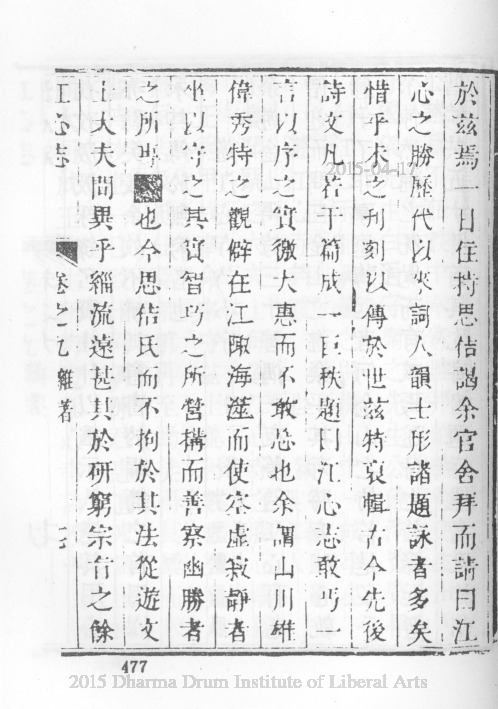 於茲焉一日住持思佶謁余官舍拜而請曰江
心之勝歷代以來詞人韻士形諸題詠者多矣
惜乎未之刊刻以傳於世茲特裒輯古今先後
詩文凡若干篇成一巨秩題曰江心志敢丐一
言以序之實徼大惠而不敢忘也余謂山川雄
偉秀特之觀僻在江陬海澨而使空虛寂靜者
坐以守之其實智巧之所營構而善察幽勝者
之所專 也今思佶氏而不拘於其法從遊文
士大夫間異乎緇流遠甚其於研窮宗旨之餘
江心志 卷之九 雜著
477
2015-04-17
2015 Dharma Drum Institute of Liberal Arts